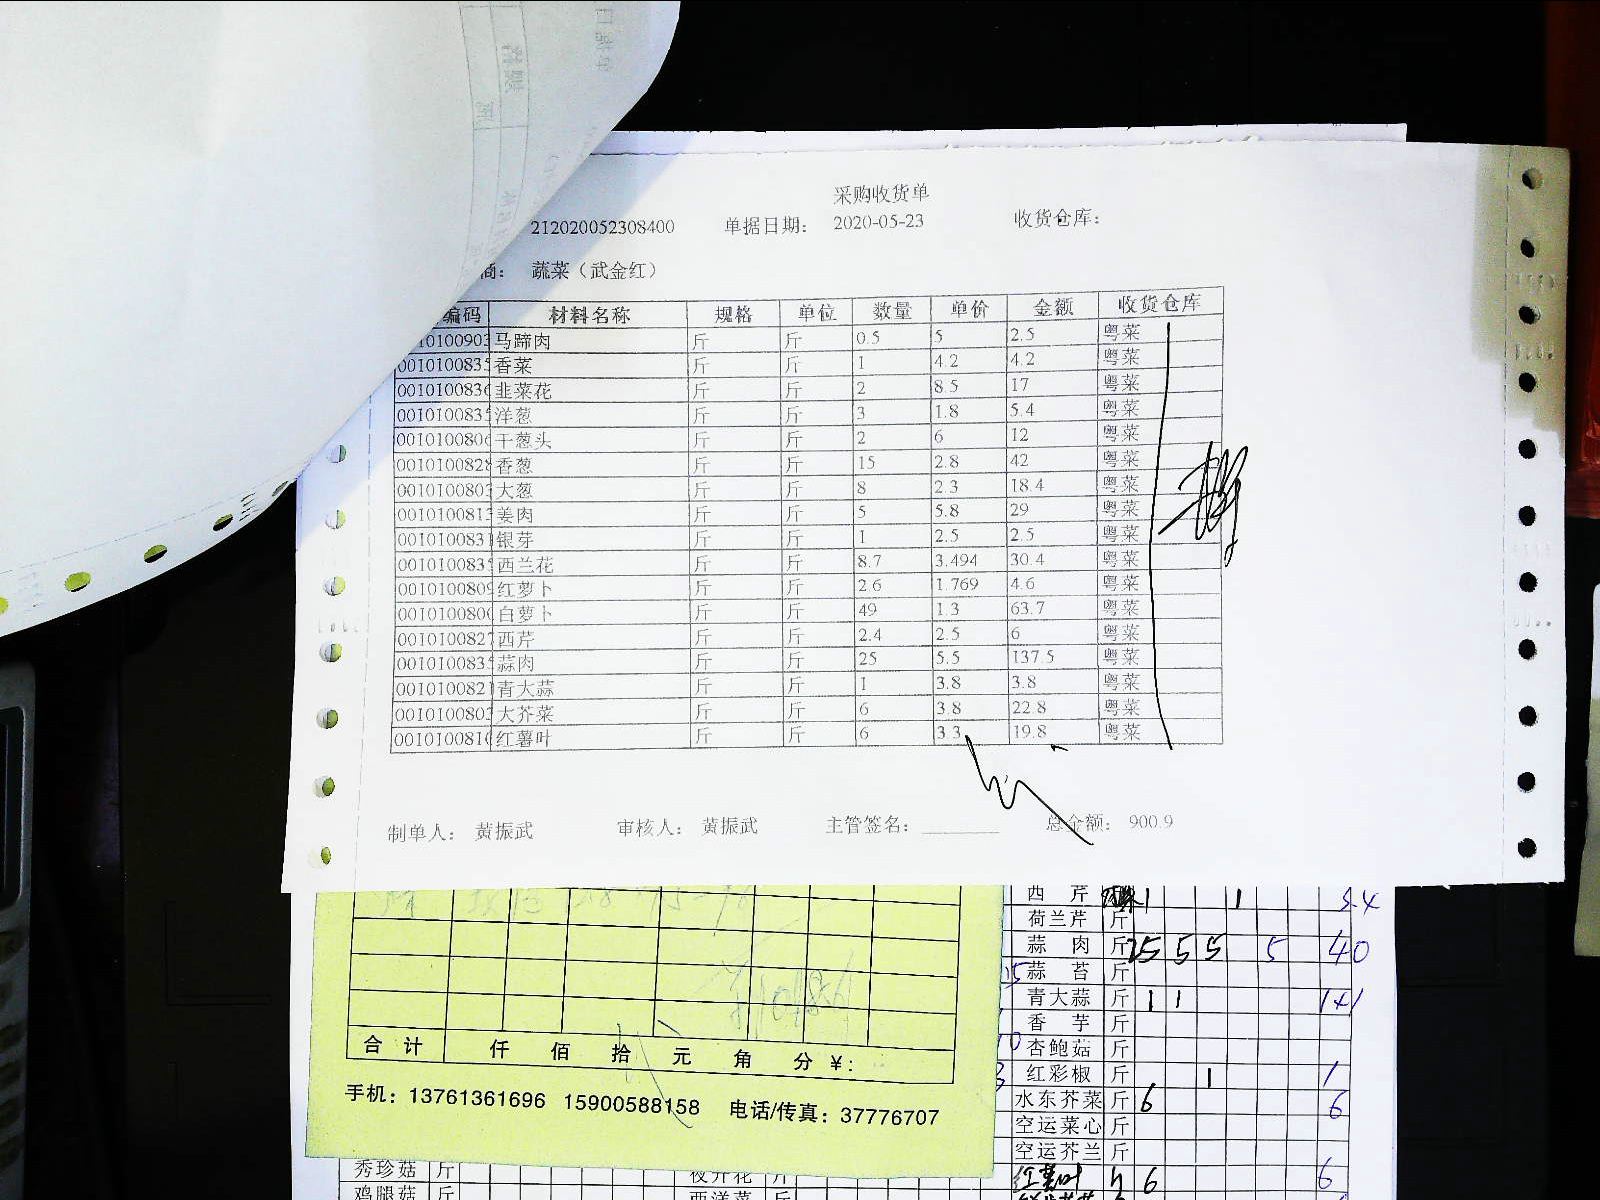 采购收货单
212020052308400 单据日期： 2020-05-23 收货仓库：
商： 蔬菜（武金红）
编码 材料名称 规格 单位 数量 单价 金额 收货仓库
0100903 马蹄肉 斤 斤 0.5 5 2.5 粤菜
001010083 香菜 斤 斤 1 4.2 4.2 粤菜
001010083 韭菜花 斤 斤 2 8.5 17 粤菜
001010083 洋葱 斤 斤 3 1.8 5.4 粤菜
001010080 干葱头 斤 斤 2 6 12 粤菜
001010082 香葱 斤 斤 15 2.8 42 粤菜
001010080 大葱 斤 斤 8 2.3 18.4 粤菜
001010081 姜肉 斤 斤 5 5.8 29 粤菜
001010083 银芽 斤 斤 1 2.5 2.5 粤菜
001010083 西兰花 斤 斤 8.7 3.494 30.4 粤菜
001010080 红萝卜 斤 斤 2.6 1.769 4.6 粤菜
001010080 白萝卜 斤 斤 49 1.3 63.7 粤菜
001010082 西芹 斤 斤 2.4 2.5 6 粤菜
001010083 蒜肉 斤 斤 25 5.5 137.5 粤菜
001010082 青大蒜 斤 斤 1 3.8 3.8 粤菜
001010080 大芥菜 斤 斤 6 3.8 22.8 粤菜
001010081 红薯叶 斤 斤 6 3.3 19.8 粤菜
制单人： 黄振武 审核人： 黄振武 主管签名： 总金额： 900.9
西芹 1 1 2.4
荷兰芹 斤
蒜肉 斤 25 5 5 5 40
蒜苔 斤
青大蒜 斤 1 1 1+1
香芋 斤
杏鲍菇 斤
红彩椒 斤 1 1
水东芥菜 斤 6 6
空运菜心 斤
空运芥兰 斤
红薯叶 6 6
合计 仟 佰 拾 元 角 分 ¥：
手机：13761361696 15900588158 电话/传真：37776707
秀珍菇 斤 夜开花 斤
鸡腿菇 斤 西洋菜 斤